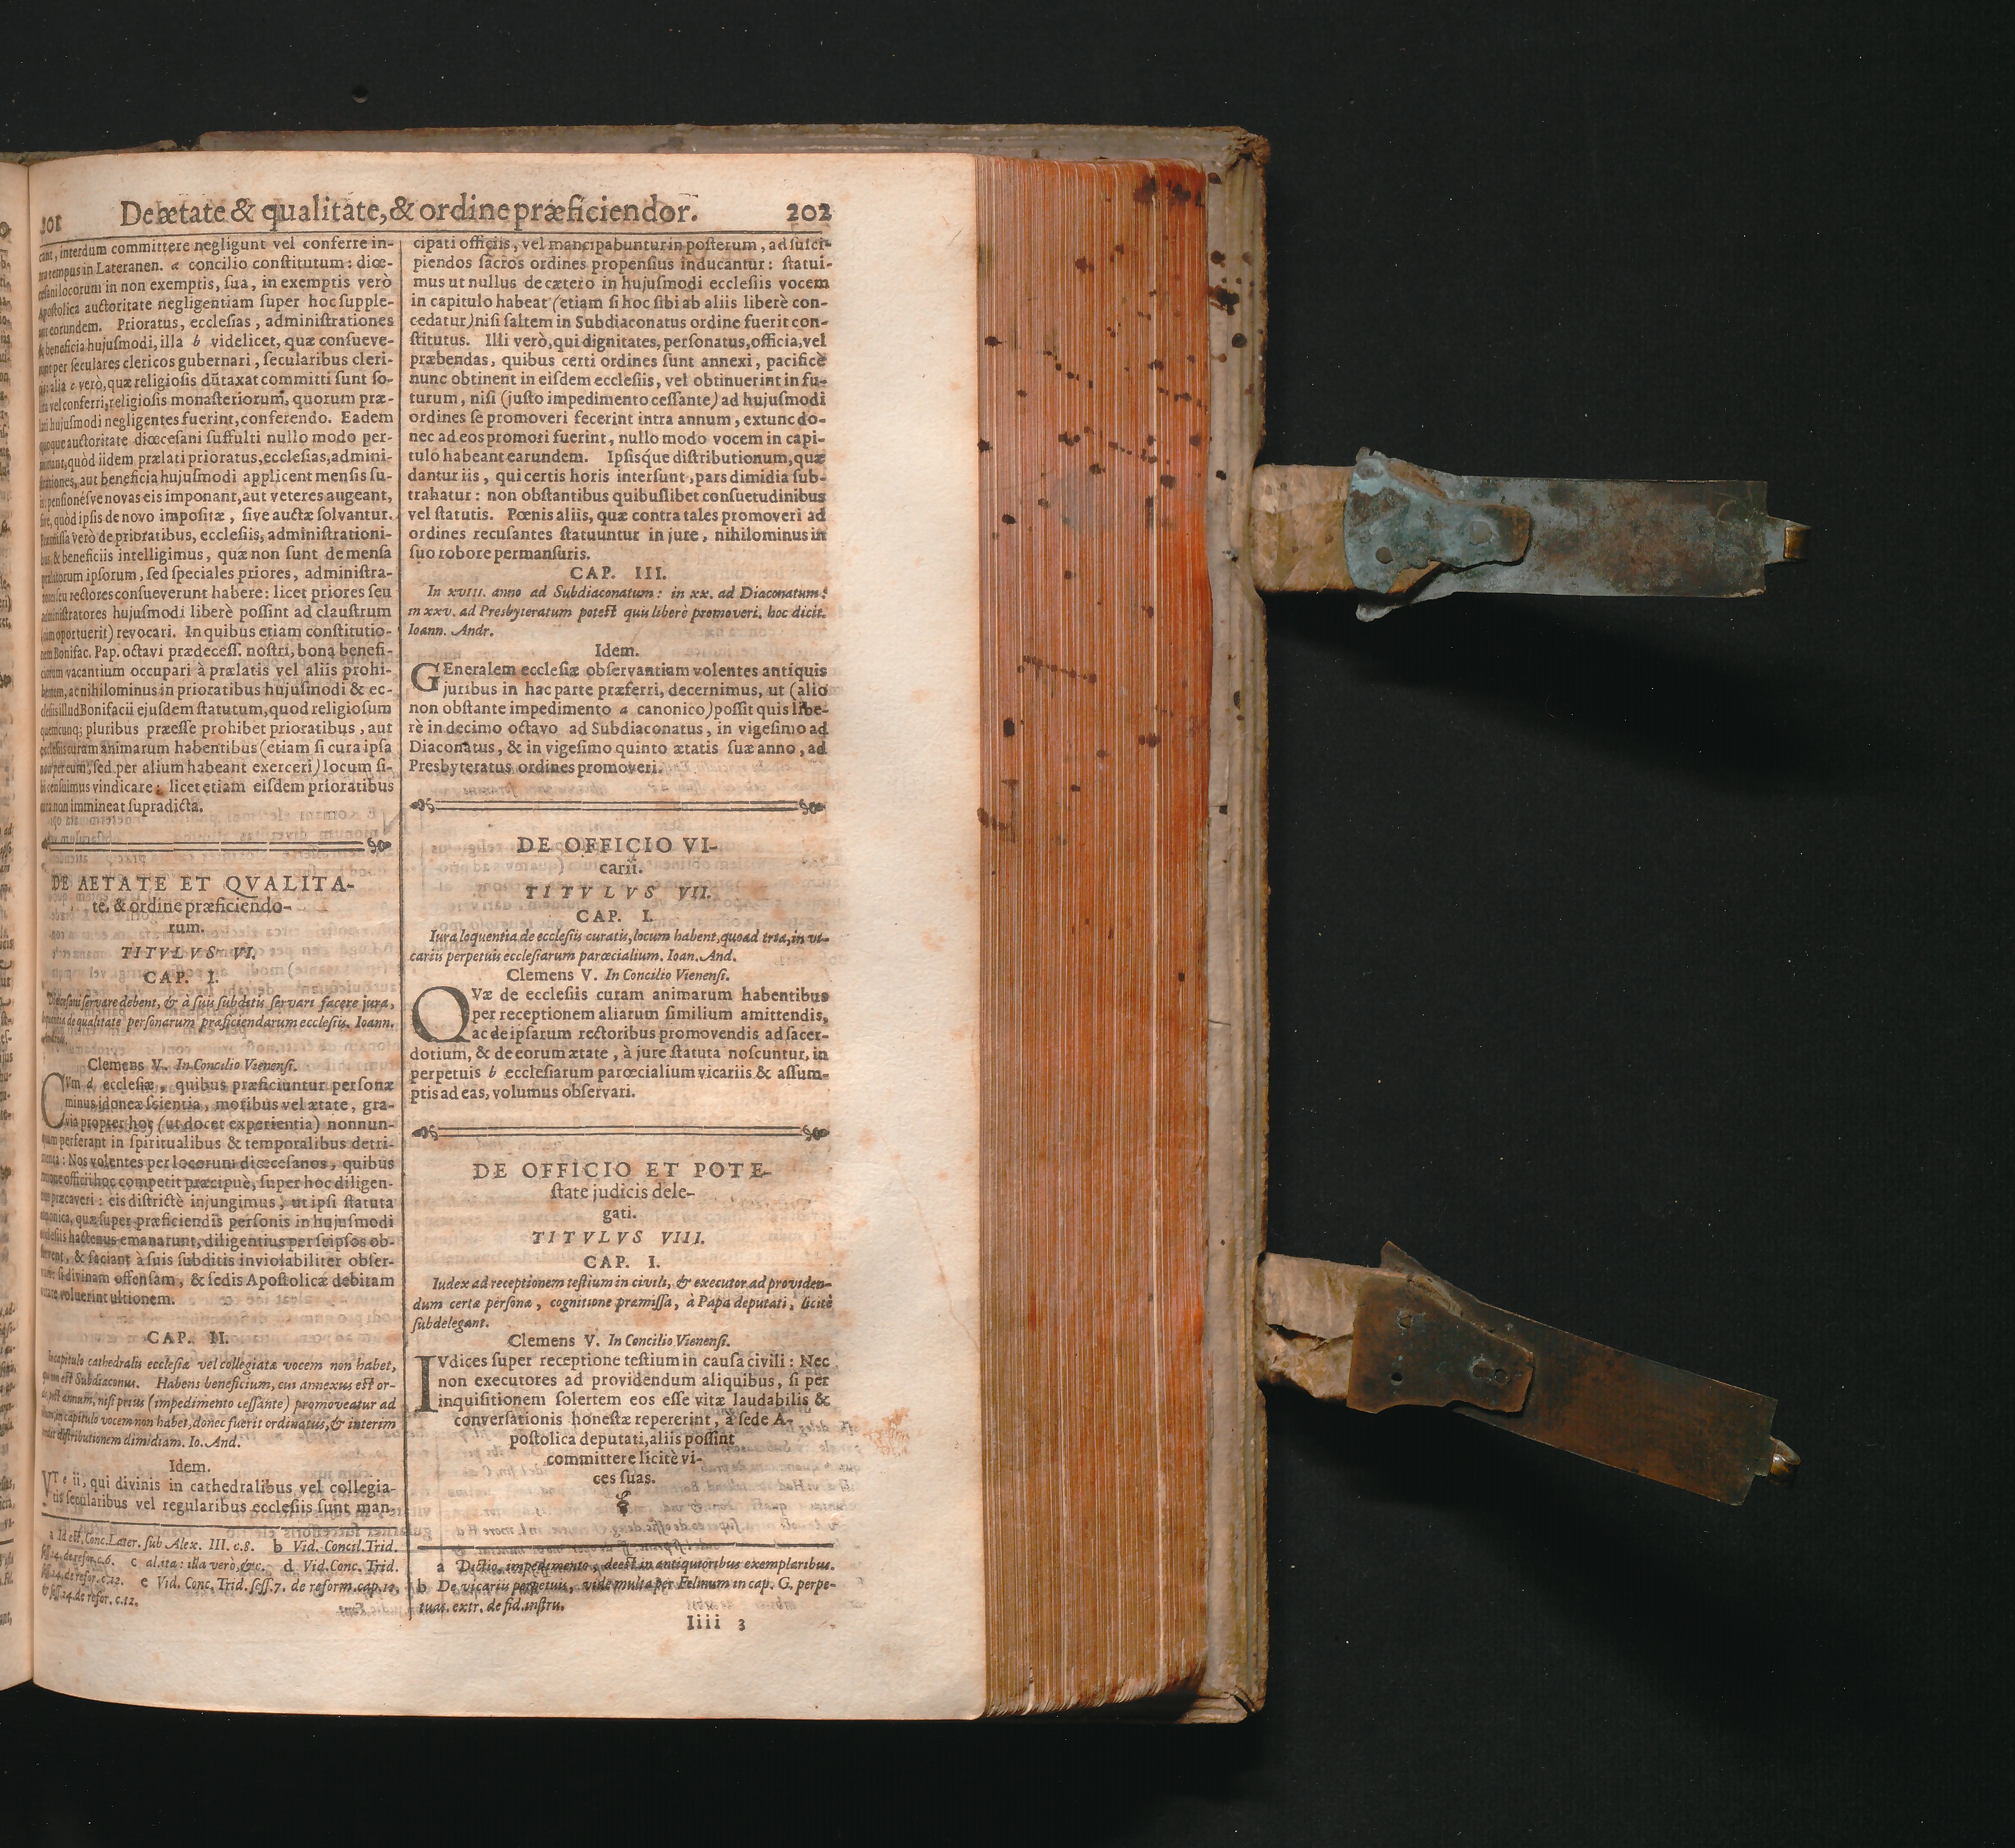 201 De ætate & qualitate, & ordine præficiendor. 202
cant, interdum committere negligunt vel conferre in-
tra tempus in Lateranen. a concilio constitutum: diœ-
cesani locorum in non exemptis, sua, in exemptis verò
Apostolica auctoritate negligentiam super hoc supple-
ant eorundem. Prioratus, ecclesias, administrationes
& beneficia hujusmodi, illa b videlicet, quæ consueve-
runt per seculares clericos gubernari, secularibus cleri-
cis: alia c verò, quæ religiosis dūtaxat committi sunt so-
lita vel conferri, religiosis monasteriorum, quorum præ-
lati hujusmodi negligentes fuerint, conferendo. Eadem
quoque auctoritate diœcesani suffulti nullo modo per-
mittant, quòd iidem prælati prioratus, ecclesias, admini-
strationes, aut beneficia hujusmodi applicent mensis su-
is: pensionésve novas eis imponant, aut veteres augeant,
sive, quòd ipsis de novo impositæ, sive auctæ solvantur.
Præmissa verò de prioratibus, ecclesiis, administrationi-
bus, & beneficiis intelligimus, quæ non sunt de mensa
prælatorum ipsorum, sed speciales priores, administra-
tores seu rectores consueverunt habere: licet priores seu
administratores hujusmodi liberè possint ad claustrum
(cum oportuerit) revocari. In quibus etiam constitutio-
nem Bonifac. Pap. octavi prædecess. nostri, bona benefi-
ciorum vacantium occupari à prælatis vel aliis prohi-
bentem, ac nihilominus in prioratibus hujusmodi & ec-
clesiis illud Bonifacii ejusdem statutum, quod religiosum
quemcunq; pluribus præesse prohibet prioratibus, aut
ecclesiis curam animarum habentibus (etiam si cura ipsa
non per eum, sed per alium habeant exerceri) locum si-
bi censuimus vindicare: licet etiam eisdem prioratibus
cura non immineat supradicta.
DE AETATE ET QVALITA-
te, & ordine præficiendo-
rum.
TITVLVS VI.
CAP. I.
Diœcesani servare debent, & à suis subditis servari facere jura,
loquentia de qualitate personarum præficiendarum ecclesiis. Ioann.
Clemens V. In Concilio Vienensi.
CVm d ecclesiæ, quibus præficiuntur personæ
minus idoneæ scientia, moribus vel ætate, gra-
via propter hoc (ut docet experientia) nonnun-
quam perferant in spiritualibus & temporalibus detri-
menta: Nos volentes per locorum diœcesanos, quibus
ratione officii hoc competit præcipuè, super hoc diligen-
tius præcaveri: eis districtè injungimus, ut ipsi statuta
canonica, quæ super præficiendis personis in hujusmodi
ecclesiis hactenus emanarunt, diligentius per seipsos ob-
servent, & faciant à suis subditis inviolabiliter obser-
vari: si divinam offensam, & sedis Apostolicæ debitam
vitare voluerint ultionem.
CAP. II.
In capitulo cathedralis ecclesiæ vel collegiatæ vocem non habet,
qui non est Subdiaconus. Habens beneficium, cui annexus est or-
do, post annum, nisi prius (impedimento cessante) promoveatur ad
illum, in capitulo vocem non habet, donec fuerit ordinatus, & interim
perdit distributionem dimidiam. Io. And.
Idem.
VT e ii, qui divinis in cathedralibus vel collegia-
tis secularibus vel regularibus ecclesiis sunt man-
a Id est, Conc. Later. sub Alex. III. c.8. b Vid. Concil. Trid.
sess.14. de refor. c.6. c al. ita: illa verò, &c. d Vid. Conc. Trid.
sess.24. de refor. c.12. e Vid. Conc. Trid. sess.7. de reform. cap. 12,
& sess.24. de refor. c.12.
cipati officiis, vel mancipabuntur in posterum, ad susci-
piendos sacros ordines propensius inducantur: statui-
mus ut nullus de cætero in hujusmodi ecclesiis vocem
in capitulo habeat (etiam si hoc sibi ab aliis liberè con-
cedatur) nisi saltem in Subdiaconatus ordine fuerit con-
stitutus. Illi verò, qui dignitates, personatus, officia, vel
præbendas, quibus certi ordines sunt annexi, pacificè
nunc obtinent in eisdem ecclesiis, vel obtinuerint in fu-
turum, nisi (justo impedimento cessante) ad hujusmodi
ordines se promoveri fecerint intra annum, extunc do-
nec ad eos promoti fuerint, nullo modo vocem in capi-
tulo habeant earundem. Ipsisq́ue distributionum, quæ
dantur iis, qui certis horis intersunt, pars dimidia sub-
trahatur: non obstantibus quibuslibet consuetudinibus
vel statutis. Pœnis aliis, quæ contra tales promoveri ad
ordines recusantes statuuntur in jure, nihilominus in
suo robore permansuris.
CAP. III.
In XVIII. anno ad Subdiaconatum: in XX. ad Diaconatum:
in XXV. ad Presbyteratum potest quis liberè promoveri. hoc dicit.
Ioann. Andr.
Idem.
GEneralem ecclesiæ observantiam volentes antiquis
juribus in hac parte præferri, decernimus, ut (alio
non obstante impedimento a canonico) possit quis libe-
rè in decimo octavo ad Subdiaconatus, in vigesimo ad
Diaconatus, & in vigesimo quinto ætatis suæ anno, ad
Presbyteratus ordines promoveri.
DE OFFICIO VI-
carii.
TITVLVS VII.
CAP. I.
Iura loquentia de ecclesiis curatis, locum habent, quoad tria, in vi-
cariis perpetuis ecclesiarum parœcialium. Ioan. And.
Clemens V. In Concilio Vienensi.
QVæ de ecclesiis curam animarum habentibus
per receptionem aliarum similium amittendis,
ac de ipsarum rectoribus promovendis ad sacer-
dotium, & de eorum ætate, à jure statuta noscuntur, in
perpetuis b ecclesiarum parœcialium vicariis & assum-
ptis ad eas, volumus observari.
DE OFFICIO ET POTE-
state judicis dele-
gati.
TITVLVS VIII.
CAP. I.
Iudex ad receptionem testium in civili, & executor ad providen-
dum certæ personæ, cognitione præmissa, à Papa deputati, licitè
subdelegant.
Clemens V. In Concilio Vienensi.
IVdices super receptione testium in causa civili: Nec
non executores ad providendum aliquibus, si per
inquisitionem solertem eos esse vitæ laudabilis &
conversationis honestæ repererint, à sede A-
postolica deputati, aliis possint
committere licitè vi-
ces suas.
a Dictio, impedimento, deest in antiquioribus exemplaribus.
b De vicariis perpetuis, vide multa per Felinum in cap. G. perpe-
tuus. extr. de fid. instru.
Iiii 3